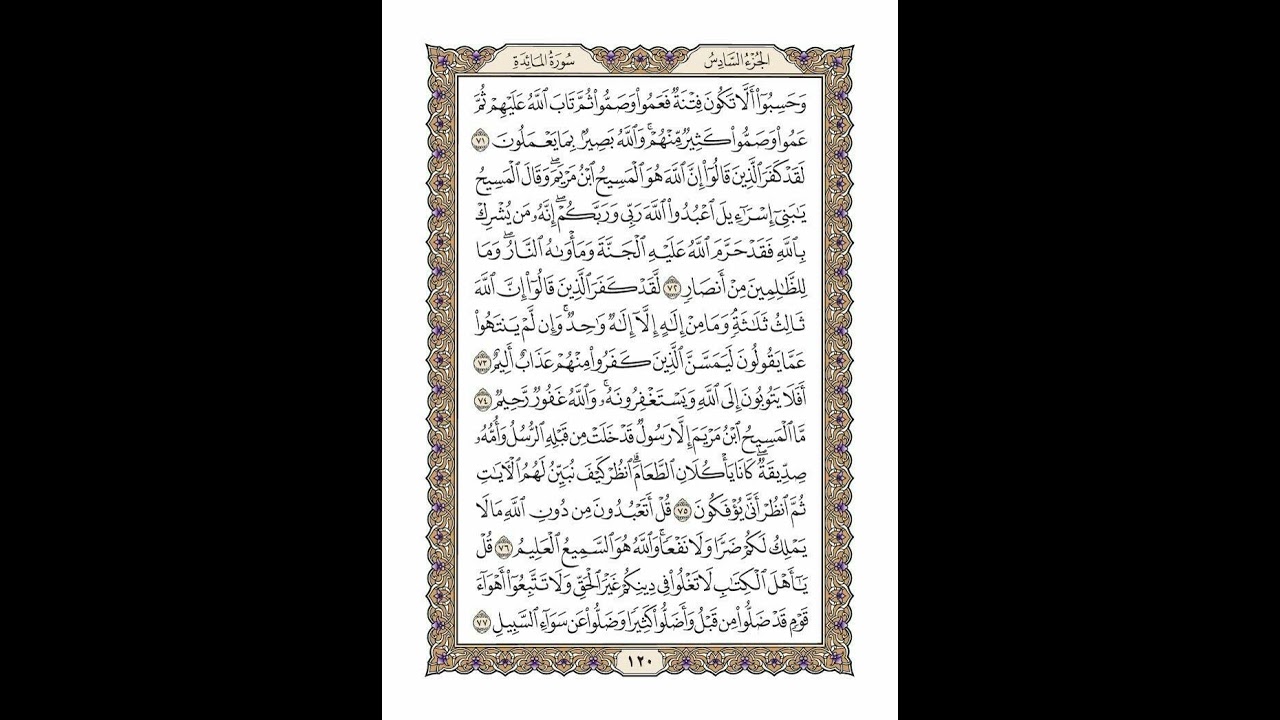 الجُزْءُ السَّادِسُ
سُورَةُ المَائِدَةِ
وَحَسِبُوٓا۟ أَلَّا تَكُونَ فِتْنَةٌ فَعَمُوا۟ وَصَمُّوا۟ ثُمَّ تَابَ ٱللَّهُ عَلَيْهِمْ ثُمَّ
عَمُوا۟ وَصَمُّوا۟ كَثِيرٌ مِّنْهُمْ ۚ وَٱللَّهُ بَصِيرٌۢ بِمَا يَعْمَلُونَ ٧١
لَقَدْ كَفَرَ ٱلَّذِينَ قَالُوٓا۟ إِنَّ ٱللَّهَ هُوَ ٱلْمَسِيحُ ٱبْنُ مَرْيَمَ ۖ وَقَالَ ٱلْمَسِيحُ
يَٰبَنِىٓ إِسْرَٰٓءِيلَ ٱعْبُدُوا۟ ٱللَّهَ رَبِّى وَرَبَّكُمْ ۖ إِنَّهُۥ مَن يُشْرِكْ
بِٱللَّهِ فَقَدْ حَرَّمَ ٱللَّهُ عَلَيْهِ ٱلْجَنَّةَ وَمَأْوَىٰهُ ٱلنَّارُ ۖ وَمَا
لِلظَّٰلِمِينَ مِنْ أَنصَارٍ ٧٢ لَّقَدْ كَفَرَ ٱلَّذِينَ قَالُوٓا۟ إِنَّ ٱللَّهَ
ثَالِثُ ثَلَٰثَةٍ ۘ وَمَا مِنْ إِلَٰهٍ إِلَّآ إِلَٰهٌ وَٰحِدٌ ۚ وَإِن لَّمْ يَنتَهُوا۟
عَمَّا يَقُولُونَ لَيَمَسَّنَّ ٱلَّذِينَ كَفَرُوا۟ مِنْهُمْ عَذَابٌ أَلِيمٌ ٧٣
أَفَلَا يَتُوبُونَ إِلَى ٱللَّهِ وَيَسْتَغْفِرُونَهُۥ ۚ وَٱللَّهُ غَفُورٌ رَّحِيمٌ ٧٤
مَّا ٱلْمَسِيحُ ٱبْنُ مَرْيَمَ إِلَّا رَسُولٌ قَدْ خَلَتْ مِن قَبْلِهِ ٱلرُّسُلُ وَأُمُّهُۥ
صِدِّيقَةٌ ۖ كَانَا يَأْكُلَانِ ٱلطَّعَامَ ۗ ٱنظُرْ كَيْفَ نُبَيِّنُ لَهُمُ ٱلْءَايَٰتِ
ثُمَّ ٱنظُرْ أَنَّىٰ يُؤْفَكُونَ ٧٥ قُلْ أَتَعْبُدُونَ مِن دُونِ ٱللَّهِ مَا لَا
يَمْلِكُ لَكُمْ ضَرًّا وَلَا نَفْعًا ۚ وَٱللَّهُ هُوَ ٱلسَّمِيعُ ٱلْعَلِيمُ ٧٦ قُلْ
يَٰٓأَهْلَ ٱلْكِتَٰبِ لَا تَغْلُوا۟ فِى دِينِكُمْ غَيْرَ ٱلْحَقِّ وَلَا تَتَّبِعُوٓا۟ أَهْوَآءَ
قَوْمٍ قَدْ ضَلُّوا۟ مِن قَبْلُ وَأَضَلُّوا۟ كَثِيرًا وَضَلُّوا۟ عَن سَوَآءِ ٱلسَّبِيلِ ٧٧
١٢٠